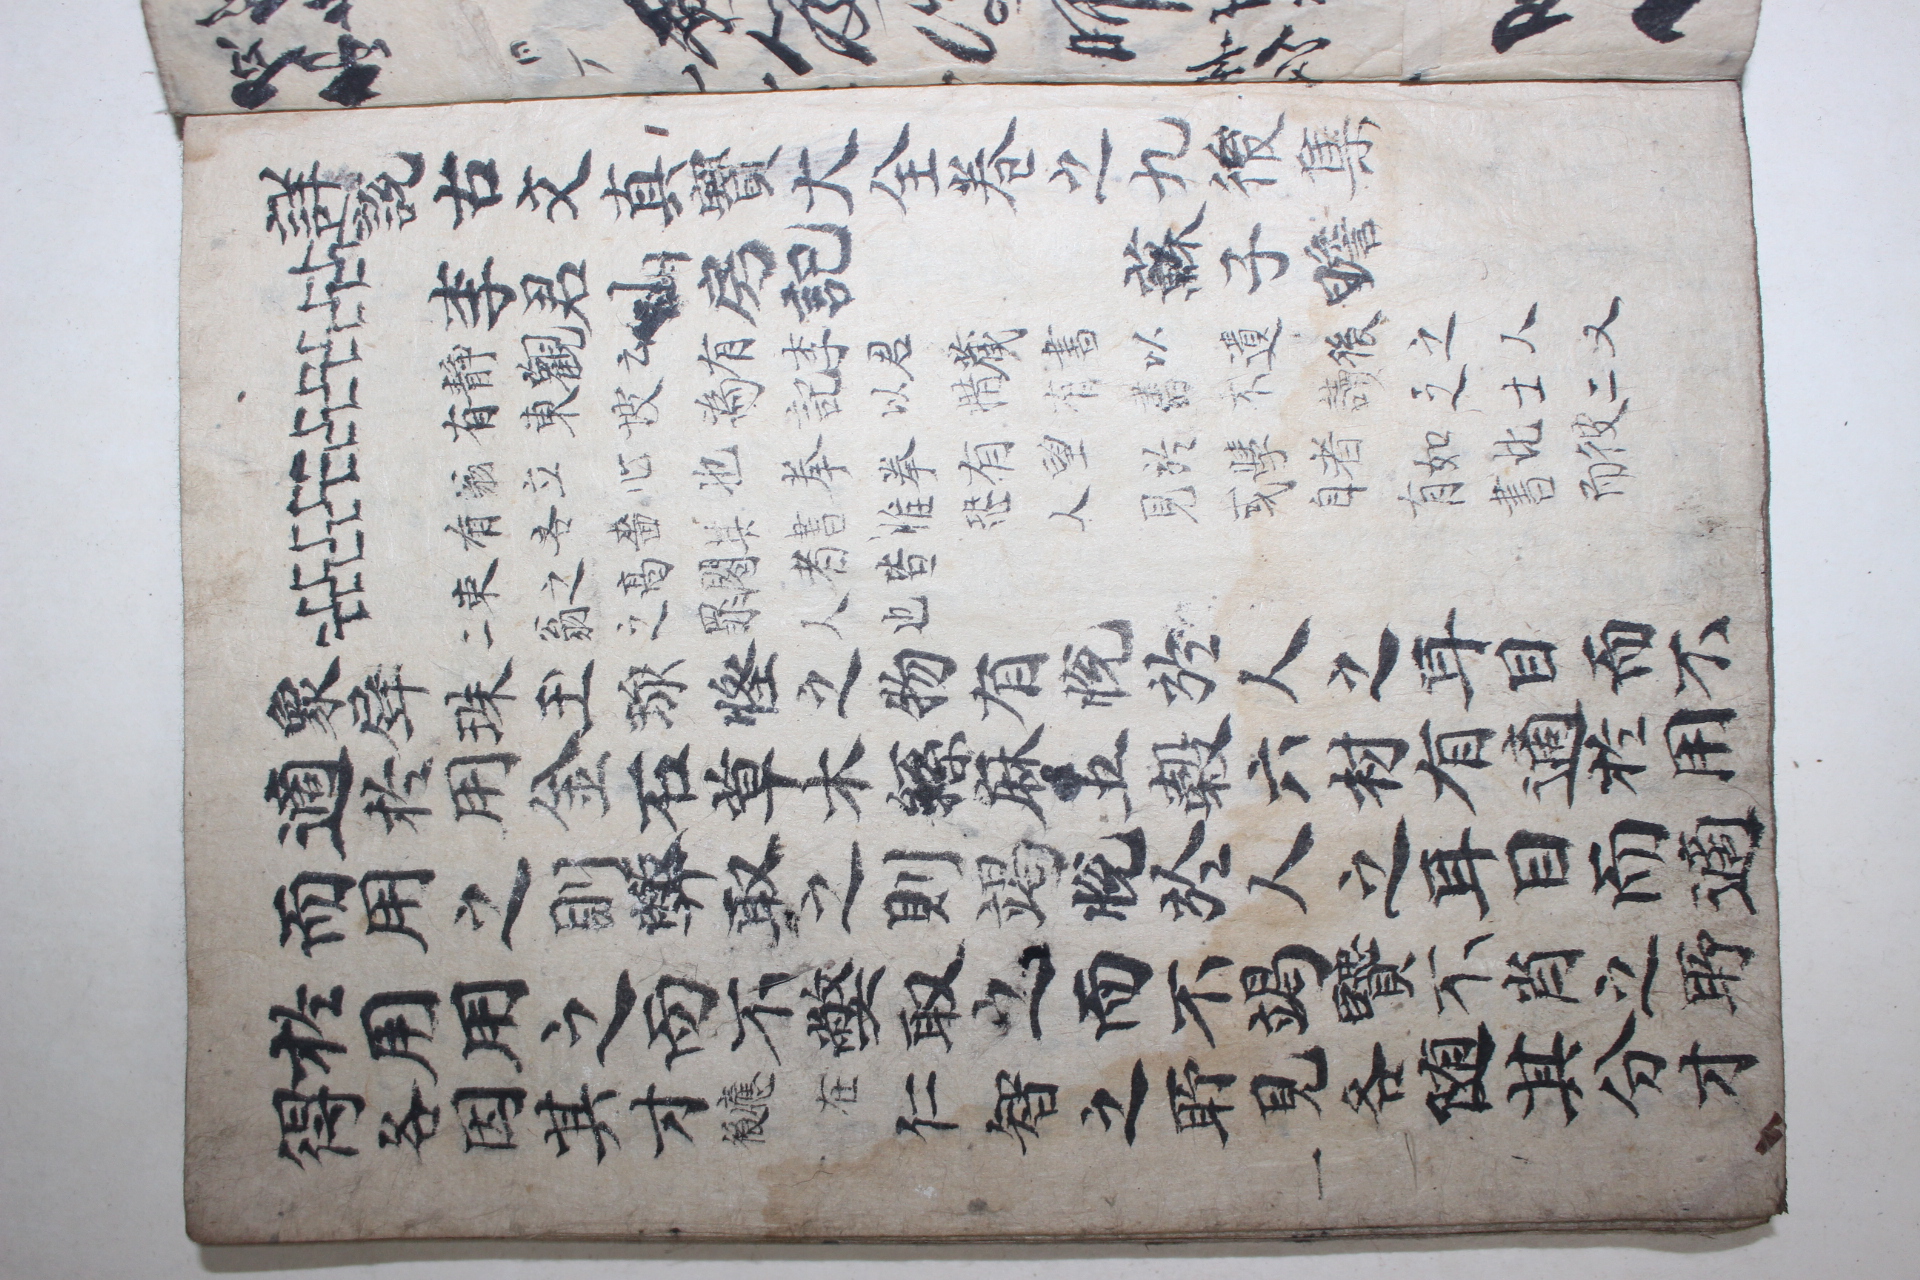 詳説古文真寶大全卷之九後集
李君山房記 蘇子瞻
靜觀云有李君藏書以遺後之人又
有東坡為記以惜有書不讀之士二
翁立心也拳拳有望於學者如此彼
有吝嗇其書惟恐人見或自有書而
束之高閣者皆
二翁之罪人也
象犀珠玉珎恠之物有悅於人之耳目而不
適於用金石草木絲麻五穀六材有適於用
而用之則弊取之則竭悅於人之耳目而適
於用用之而不弊取之而不竭賢不肖之所
得各因其才應在後仁智之所見各随其分才
一